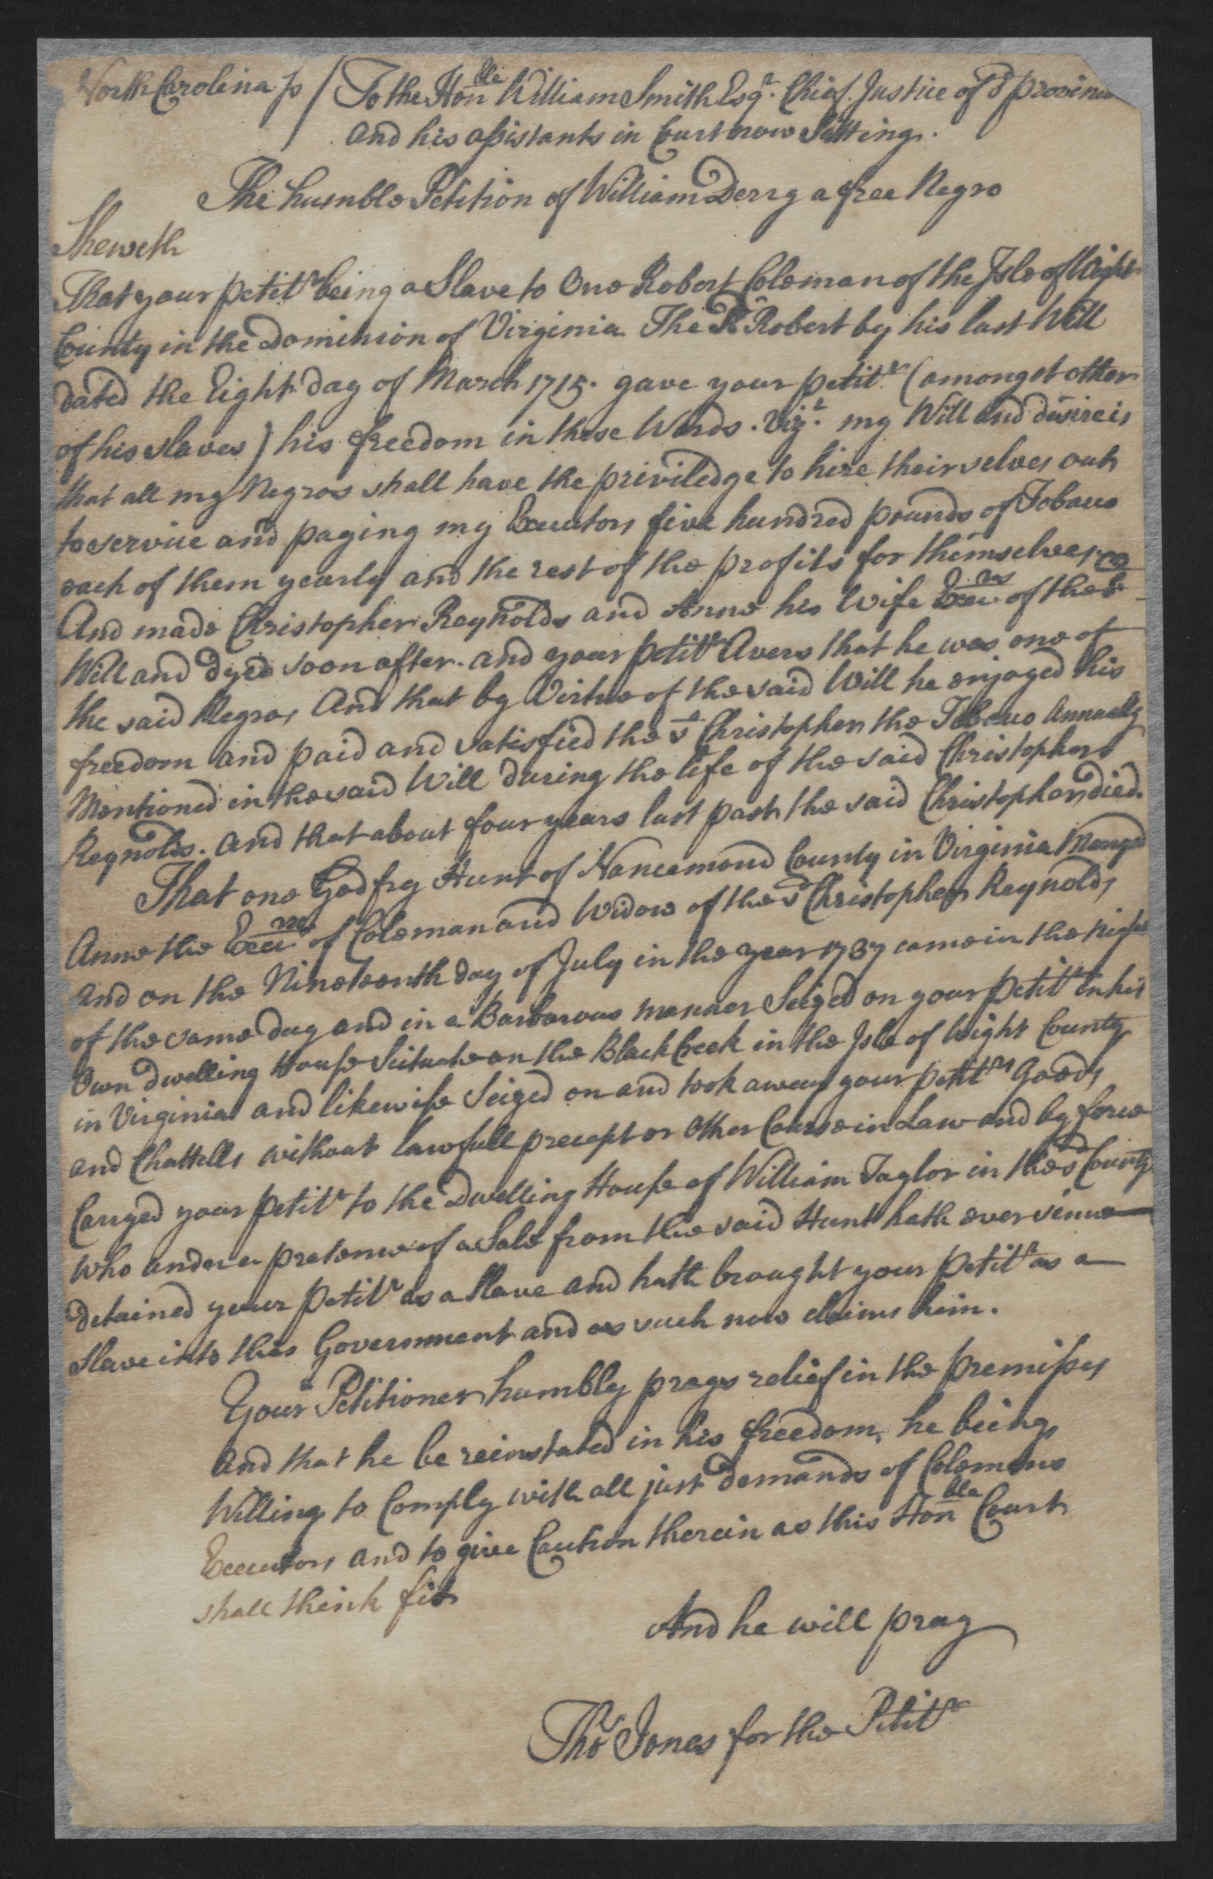 North Carolina ss To the Honble William Smith Esqr. Chief Justice of sd province
and his assistants in Court now Sitting.
The humble Petition of William Derry a free Negro
Sheweth
That your petitr being a Slave to One Robert Coleman of the Isle of Wight
County in the Dominion of Virginia The sd Robert by his last Will
dated the Eight day of March 1715. gave your petitr (amongst other
of his slaves) his freedom in these Words. Vizt. my Will and desire is
that all my Negros shall have the priviledge to hire their selves out
to service and paying my Executors five hundred pounds of Tobacco
each of them yearly and the rest of the profits for themselves
And made Christopher Reynolds and Anne his Wife Exers of the sd
Will and dyed soon after. and your petitr Avers that he was one of
the said Negros And that by Virtue of the said Will he enjoyed his
freedom and paid and satisfied the sd Christopher the Tobacco Annually
Mentioned in the said Will during the life of the said Christopher
Reynolds. And that about four years last past the said Christopher died.
That one Godfry Hunt of Nancemond County in Virginia Marryed
Anne the of Coleman and Widow of the sd Christopher Reynolds
and on the Nineteenth day of July in the year 1737 came in the night
of the same day and in a Barbarous manner Seized on your petitr in his
Own dwelling House Scituate on the Black Creek in the Isle of Wight County
in Virginia and likewise Seized on and took away your petitrs Goods
and Chattells without lawfull precept or Other Course in Law and by force
Carryed your petitr to the Dwelling House of William Taylor in the sd County
who under a pretence of a Sale from the said Hunt hath ever since
detained your petitr as a slave and hath brought your petitr as a
slave into this Government and as such now claims him.
Your Petitioner humbly prays relief in the premisses
and that he be reinstated in his freedom, he being
Willing to Comply with all just demands of Colemans
Executors and to give Caution therein as this Honble Court
shall think fit
And he will pray
Thos Jones for the Petitr